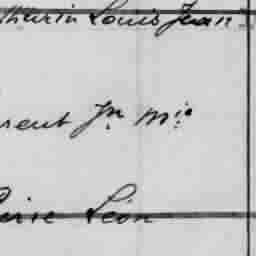 thurin Louis Jean
rent Jn Mie
Léon